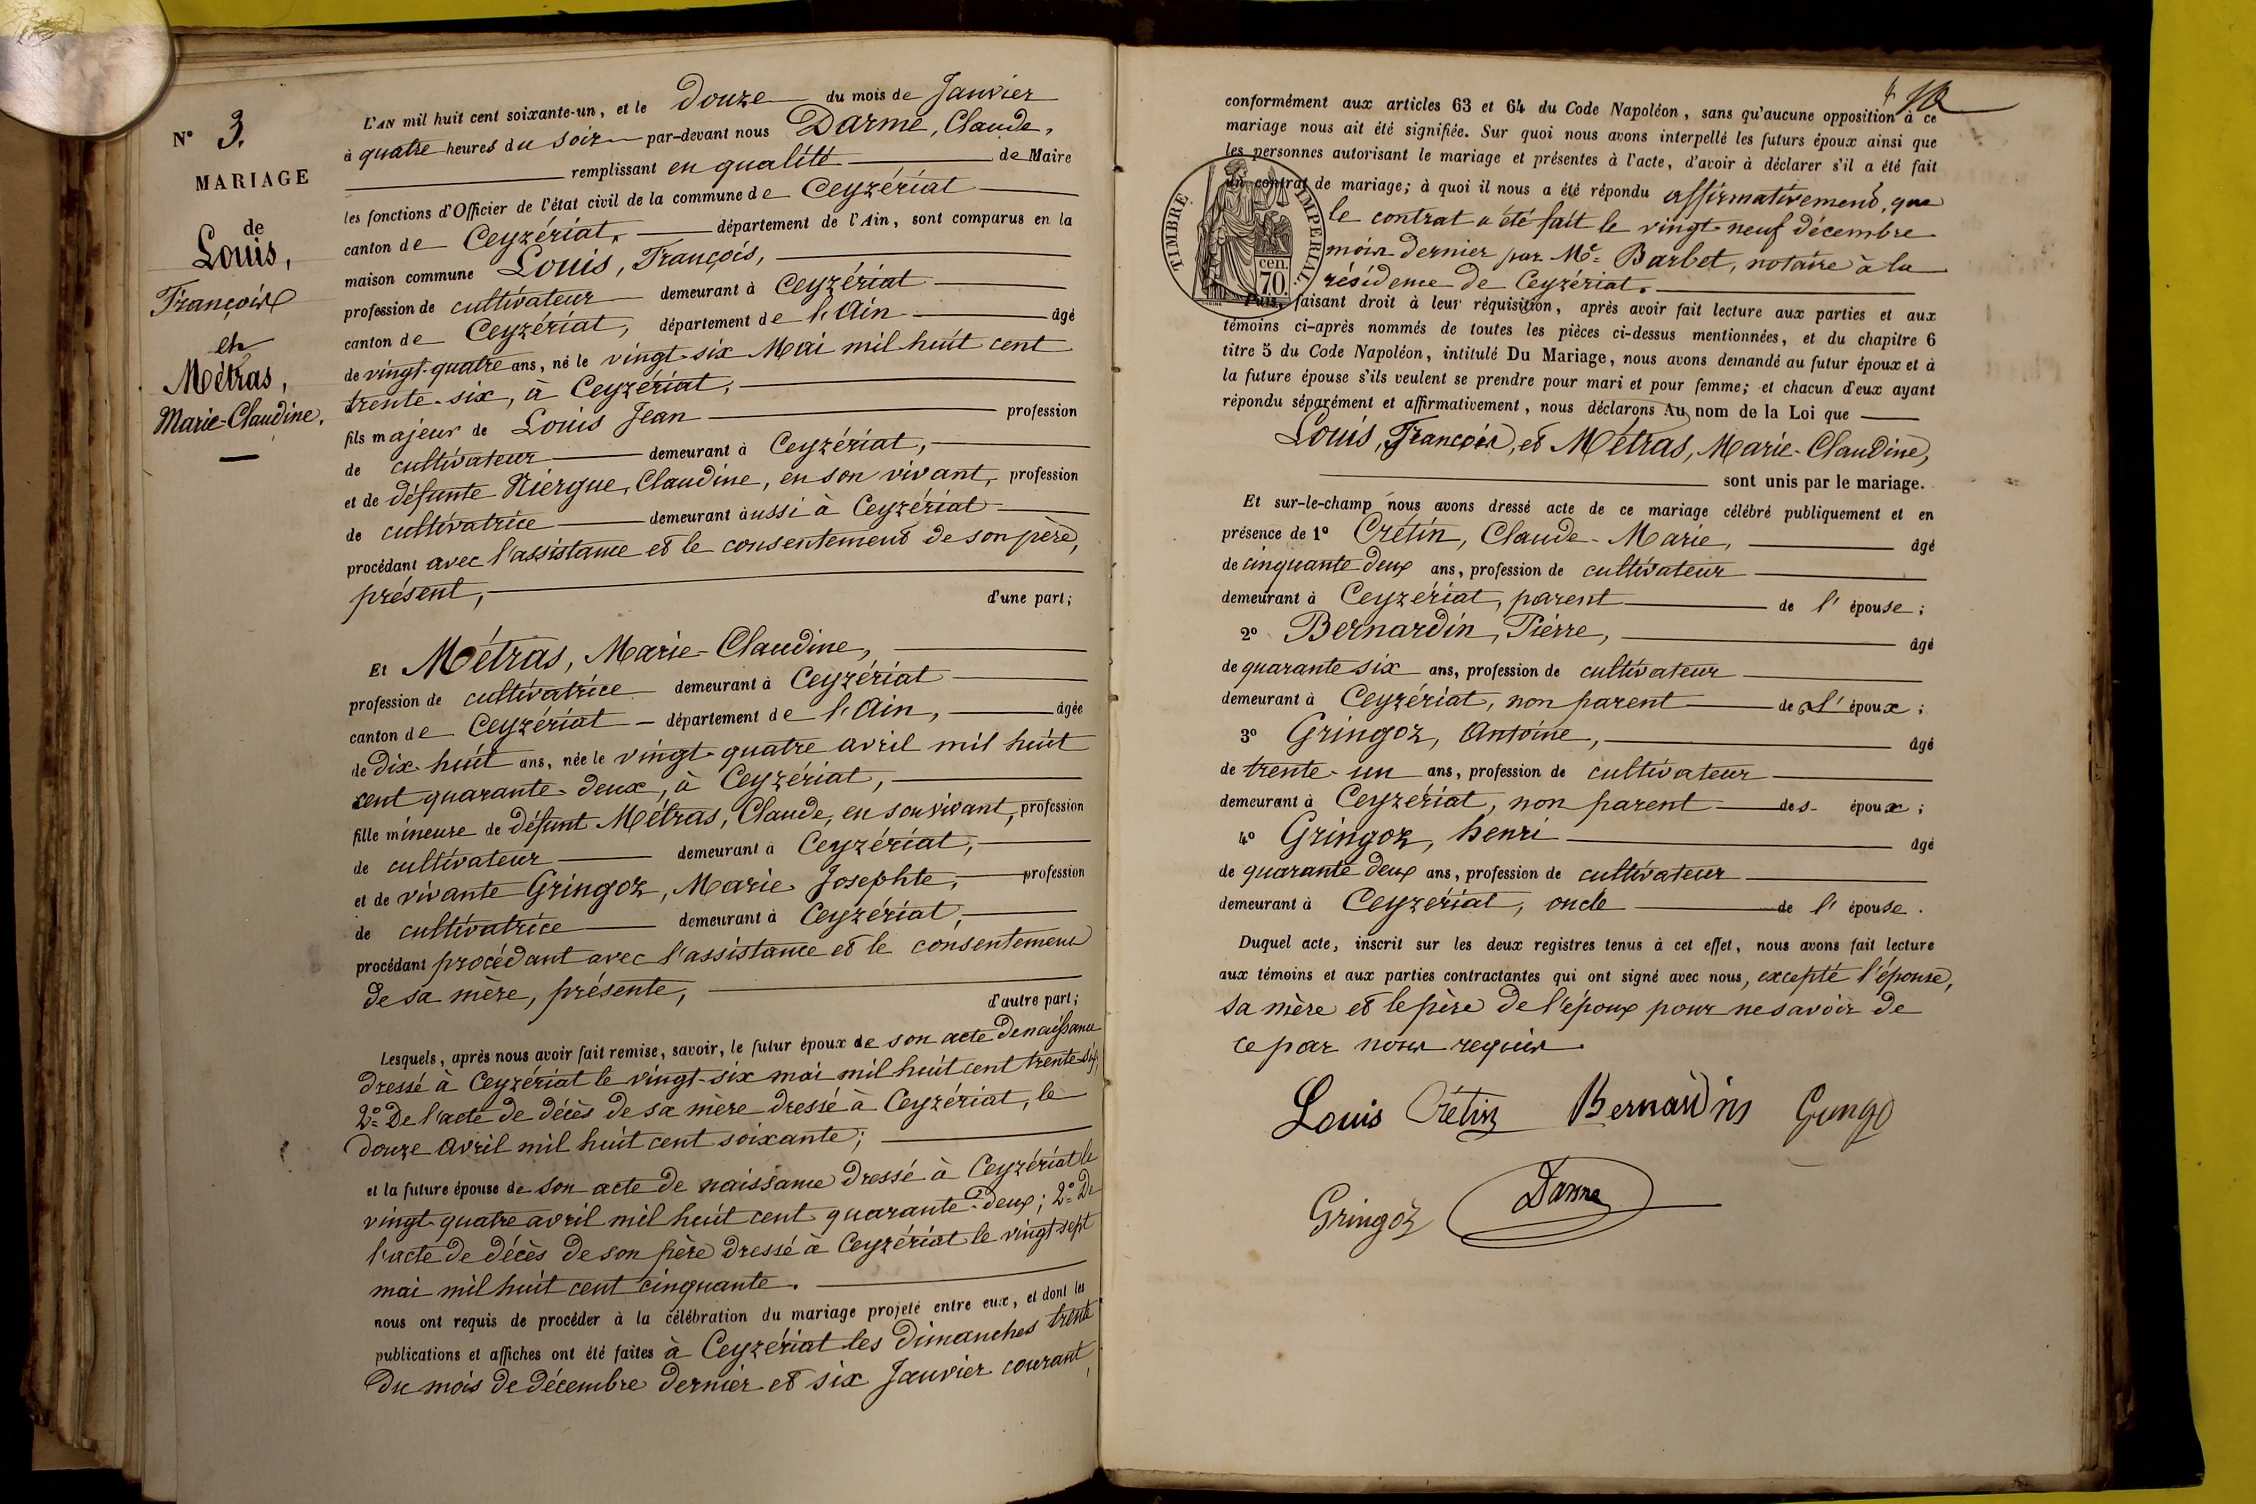 N° 3.
MARIAGE
de
Louis,
François
et
Métras,
Marie-Claudine.
L'AN mil huit cent soixante-un, et le Douze du mois de Janvier
à quatre heures du soir par-devant nous Darme, Claude,
remplissant en qualité de Maire
les fonctions d'Officier de l'état civil de la commune de Ceyzériat
canton de Ceyzériat, département de l'Ain, sont comparus en la
maison commune Louis, François,
profession de cultivateur demeurant à Ceyzériat
canton de Ceyzériat, département de l'Ain âgé
de vingt-quatre ans, né le vingt-six Mai mil huit cent
trente-six, à Ceyzériat,
fils majeur de Louis Jean profession
de cultivateur demeurant à Ceyzériat,
et de défunte Niergue, Claudine, en son vivant, profession
de cultivatrice demeurant aussi à Ceyzériat
procédant avec l'assistance et le consentement de son père,
présent,
d'une part;
Et Métras, Marie-Claudine,
profession de cultivatrice demeurant à Ceyzériat
canton de Ceyzériat département de l'Ain, âgée
de Dix-huit ans, née le vingt-quatre avril mil huit
cent quarante-deux, à Ceyzériat,
fille mineure de défunt Métras, Claude, en son vivant, profession
de cultivateur demeurant à Ceyzériat,
et de vivante Gringoz, Marie Josephte, profession
de cultivatrice demeurant à Ceyzériat,
procédant procédant avec l'assistance et le consentement
de sa mère, présente,
d'autre part;
Lesquels, après nous avoir fait remise, savoir, le futur époux de son acte de naissance
dressé à Ceyzériat le vingt-six mai mil huit cent trente-six;
2° De l'acte de décès de sa mère dressé à Ceyzériat, le
douze avril mil huit cent soixante;
et la future épouse de son acte de naissance dressé à Ceyzériat le
vingt-quatre avril mil huit cent quarante-deux; 2° De
l'acte de décès de son père dressé à Ceyzériat le vingt-sept
mai mil huit cent cinquante.
nous ont requis de procéder à la célébration du mariage projeté entre eux, et dont les
publications et affiches ont été faites à Ceyzériat les Dimanches trente
du mois de décembre dernier et six Janvier courant,
conformément aux articles 63 et 64 du Code Napoléon, sans qu'aucune opposition à ce
mariage nous ait été signifiée. Sur quoi nous avons interpellé les futurs époux ainsi que
les personnes autorisant le mariage et présentes à l'acte, d'avoir à déclarer s'il a été fait
un contrat de mariage; à quoi il nous a été répondu affirmativement, que
le contrat a été fait le vingt-neuf décembre
mois dernier par Me. Barbet, notaire à la
résidence de Ceyzériat.
TIMBRE IMPÉRIAL
cen.
70.
Puis, faisant droit à leur réquisition, après avoir fait lecture aux parties et aux
témoins ci-après nommés de toutes les pièces ci-dessus mentionnées, et du chapitre 6
titre 5 du Code Napoléon, intitulé Du Mariage, nous avons demandé au futur époux et à
la future épouse s'ils veulent se prendre pour mari et pour femme; et chacun d'eux ayant
répondu séparément et affirmativement, nous déclarons Au nom de la Loi que
Louis, François, et Métras, Marie-Claudine,
sont unis par le mariage.
Et sur-le-champ nous avons dressé acte de ce mariage célébré publiquement et en
présence de 1° Crétin, Claude-Marie, âgé
de cinquante deux ans, profession de cultivateur
demeurant à Ceyzériat, parent de l'épouse;
2° Bernardin, Pierre, âgé
de quarante six ans, profession de cultivateur
demeurant à Ceyzériat, non parent de l'époux;
3° Gringoz, Antoine, âgé
de trente-un ans, profession de cultivateur
demeurant à Ceyzériat, non parent des époux;
4° Gringoz, henri âgé
de quarante deux ans, profession de cultivateur
demeurant à Ceyzériat, oncle de l'épouse.
Duquel acte, inscrit sur les deux registres tenus à cet effet, nous avons fait lecture
aux témoins et aux parties contractantes qui ont signé avec nous, excepté l'épouse,
sa mère et le père de l'époux pour ne savoir de
ce par nous requis.
Louis Crétin Bernardin Gringo
Gringoz Darme